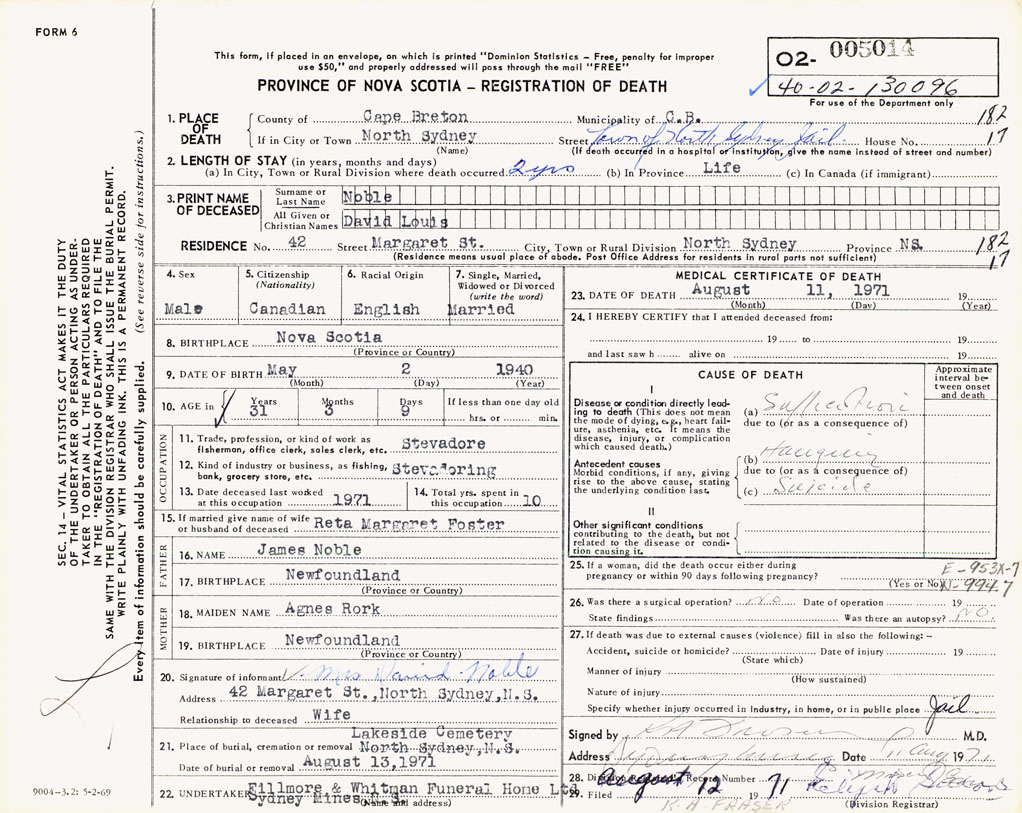 FORM 6
This form, if placed in an envelope, on which is printed "Dominion Statistics – Free, penalty for improper
use $50," and properly addressed will pass through the mail "FREE"
PROVINCE OF NOVA SCOTIA – REGISTRATION OF DEATH
02- 005014
40-02-130096
For use of the Department only
1. PLACE OF DEATH
County of Cape Breton Municipality of C.B. 182
If in City or Town North Sydney Street Town of North Sydney Jail House No. 17
(Name) (If death occurred in a hospital or institution, give the name instead of street and number)
2. LENGTH OF STAY (in years, months and days)
(a) In City, Town or Rural Division where death occurred 2 yrs (b) In Province Life (c) In Canada (if immigrant)
3. PRINT NAME OF DECEASED
Surname or Last Name Noble
All Given or Christian Names David Louis
RESIDENCE No. 42 Street Margaret St. City, Town or Rural Division North Sydney Province NS. 182
(Residence means usual place of abode. Post Office Address for residents in rural parts not sufficient) 17
4. Sex
Male
5. Citizenship
(Nationality)
Canadian
6. Racial Origin
English
7. Single, Married,
Widowed or Divorced
(write the word)
Married
8. BIRTHPLACE Nova Scotia
(Province or Country)
9. DATE OF BIRTH May 2 1940
(Month) (Day) (Year)
10. AGE in Years Months Days If less than one day old
31 3 9 hrs. or min.
OCCUPATION
11. Trade, profession, or kind of work as
fisherman, office clerk, sales clerk, etc. Stevadore
12. Kind of industry or business, as fishing,
bank, grocery store, etc. Stevadoring
13. Date deceased last worked
at this occupation 1971
14. Total yrs. spent in
this occupation 10
15. If married give name of wife
or husband of deceased Reta Margaret Foster
FATHER
16. NAME James Noble
17. BIRTHPLACE Newfoundland
(Province or Country)
MOTHER
18. MAIDEN NAME Agnes Rork
19. BIRTHPLACE Newfoundland
(Province or Country)
20. Signature of informant Mrs David Noble
Address 42 Margaret St.,North Sydney,N.S.
Relationship to deceased Wife
Lakeside Cemetery
21. Place of burial, cremation or removal North Sydney,N.S.
Date of burial or removal August 13,1971
22. UNDERTAKER Fillmore & Whitman Funeral Home Ltd
Sydney Mines N.S.
(Name and address)
MEDICAL CERTIFICATE OF DEATH
23. DATE OF DEATH August 11, 1971 19
(Month) (Day) (Year)
24. I HEREBY CERTIFY that I attended deceased from:
19 to 19
and last saw h alive on 19
CAUSE OF DEATH
Approximate
interval be-
tween onset
and death
I
Disease or condition directly lead-
ing to death (This does not mean
the mode of dying, e.g., heart fail-
ure, asthenia, etc. It means the
disease, injury, or complication
which caused death.)
(a) Suffication
due to (or as a consequence of)
Antecedent causes
Morbid conditions, if any, giving
rise to the above cause, stating
the underlying condition last.
(b) Hanging
due to (or as a consequence of)
(c) Suicide
II
Other significant conditions
contributing to the death, but not
related to the disease or condi-
tion causing it.
25. If a woman, did the death occur either during
pregnancy or within 90 days following pregnancy?
(Yes or No)
E-953X-7
N-9947
26. Was there a surgical operation? No Date of operation 19
State findings Was there an autopsy? NO
27. If death was due to external causes (violence) fill in also the following: –
Accident, suicide or homicide? Date of injury 19
(State which)
Manner of injury
(How sustained)
Nature of injury
Specify whether injury occurred in industry, in home, or in public place Jail
Signed by M.D.
Address Sydney Mines Date 11 Aug 1971
28. Division Registrar's Record Number
29. Filed August 12 1971
K. A. FRASER
(Division Registrar)
SEC. 14 – VITAL STATISTICS ACT MAKES IT THE DUTY
OF THE UNDERTAKER OR PERSON ACTING AS UNDER-
TAKER TO OBTAIN ALL THE PARTICULARS REQUIRED
IN THE "REGISTRATION OF DEATH" AND TO FILE THE
SAME WITH THE DIVISION REGISTRAR WHO SHALL ISSUE THE BURIAL PERMIT.
WRITE PLAINLY WITH UNFADING INK. THIS IS A PERMANENT RECORD.
Every item of information should be carefully supplied. (See reverse side for instructions.)
9004–3.2: 5-2-69